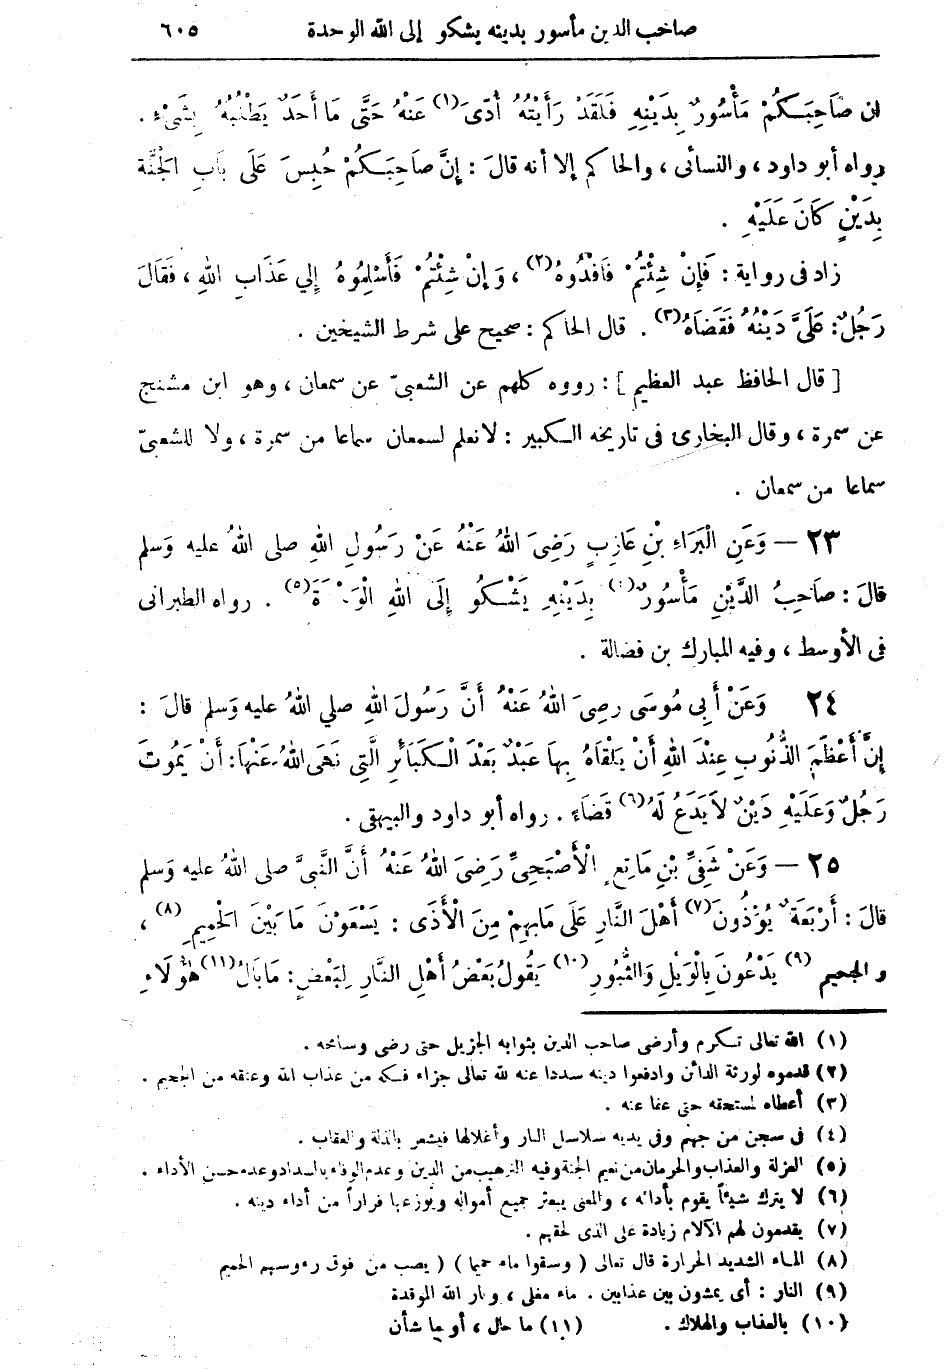 صاحب الدين مأسور بدينه يشكو إلى الله الوحدة ٦٠٥
ان صَاحِبَكُمْ مَأْسُورٌ بِدَيْنِهِ فَلَقَدْ رَأَيْتُهُ أَدَّىَ (١) عَنْهُ حَتَّى مَا أَحَدٌ يَطْلُبُهُ بِشَىْءٍ .
رواه أبو داود ، والنسائى ، والحاكم إلا أنه قالَ : إِنَّ صَاحِبَكُمْ حُبِسَ عَلَى بَابِ الْجَنَّة
بِدَيْنٍ كَانَ عَلَيْهِ .
زاد فى رواية : فَإِنْ شِئْتُمْ فَافْدُوهُ (٢) ، وَإِنْ شِئْتُمْ فَأَسْلِمُوهُ إِلي عَذَابِ اللهِ ، فَقَالَ
رَجُلٌ : عَلَىَّ دَيْنُهُ فَقَضَاهُ (٣) . قال الحاكم : صحيح على شرط الشيخين .
[ قال الحافظ عبد العظيم ] : رووه كلهم عن الشعبىّ عن سمعان ، وهو ابن مشنج
عن سمرة ، وقال البخارىّ فى تاريخه الكبير : لا نعلم لسمعان سماعا من سمرة ، ولا للشعبىّ
سماعا من سمعان .
٢٣ — وَعَنِ الْبَرَاءِ بْنِ عَازِبٍ رَضِىَ اللهُ عَنْهُ عَنْ رَسُولِ اللهِ صلى اللهُ عليه وَسلم
قالَ : صاَحِبُ الدَّيْنِ مَأْسُورٌ (٤) بِدَيْنِهِ يَشْكُو إِلَى اللهِ (٥) . رواه الطبرانى
فى الأوسط ، وفيه المبارك بن فضالة .
٢٤ وَعَنْ أَبِى مُوسَى رضِىَ اللهُ عَنْهُ أَنَّ رَسُولَ اللهِ صلي اللهُ عليه وَسلم قالَ :
إِنَّ أَعْظَمَ الذُّنُوبِ عِنْدَ اللهِ أَنْ يَلْقَاهُ بِهَا عَبْدٌ بَعْدَ الْكَبَائِرِ الَّتِى نَهَى اللهُ عَنْهَا : أَنْ يَمُوتَ
رَجُلٌ وَعَلَيْهِ دَيْنٌ لاَ يَدَعُ لَهُ (٦) قَضَاءً . رواه أبو داود والبيهقى .
٢٥ — وَعَنْ شُفَىِّ بْنِ مَاتِعٍ الْأَصْبَحِىِّ رَضِىَ اللهُ عَنْهُ أَنَّ النَّبِىَّ صلى اللهُ عليه وَسلم
قالَ : أَرْبَعَةٌ يُؤْذُونَ (٧) أَهْلَ النَّارِ عَلَى مَابِهِمْ مِنَ الْأَذَى : يَسْعَوْنَ مَا بَيْنَ الْحَمِيمِ (٨) ،
والجحيم (٩) يَدْعُونَ بِالْوَيْلِ وَالثُّبُورِ (١٠) يَقُولُ بَعْضُ أَهْلِ النَّارِ لِبَعْضٍ : مَا بَالُ (١١) هٰؤُلَاءِ
(١) الله تعالى تكرم وأرضى صاحب الدين بثوابه الجزيل حتى رضى وسامحه .
(٢) قدموه لورثة الدائن وادفعوا دينه سددا عنه لله تعالى جزاء فكه من عذاب الله وعتقه من الجحيم .
(٣) أعطاه لمستحقه حتى عفا عنه .
(٤) فى سجن من جهنم وفى يديه سلاسل النار وأغلالها فيشعر بالذلة والعقاب .
(٥) العزلة والعذاب والحرمان من نعيم الجنة وفيه الترهيب من الدين وعدم الوفاء بالسداد وعدم حسن الأداء .
(٦) لا يترك شيئاً يقوم بأدائه ، والمعنى يبعثر جميع أمواله ويوزعها فراراً من أداء دينه .
(٧) يقدمون لهم الآلام زيادة على الذى لحقهم .
(٨) الماء الشديد الحرارة قال تعالى ( وسقوا ماء حميما ) ( يصب من فوق رءوسهم الحميم
(٩) النار : أى يمشون بين عذابين . ماء مغلى ، ونار الله الموقدة
(١٠) بالعذاب والهلاك . (١١) ما حال ، أو ما شأن